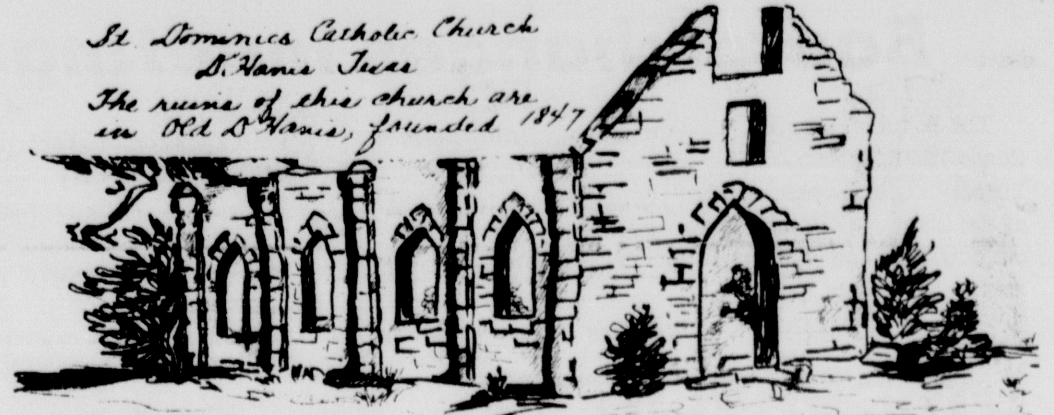 St. Dominics Catholic Church
D'Hanis Texas
The ruins of this church are
in Old D'Hanis, founded 1847